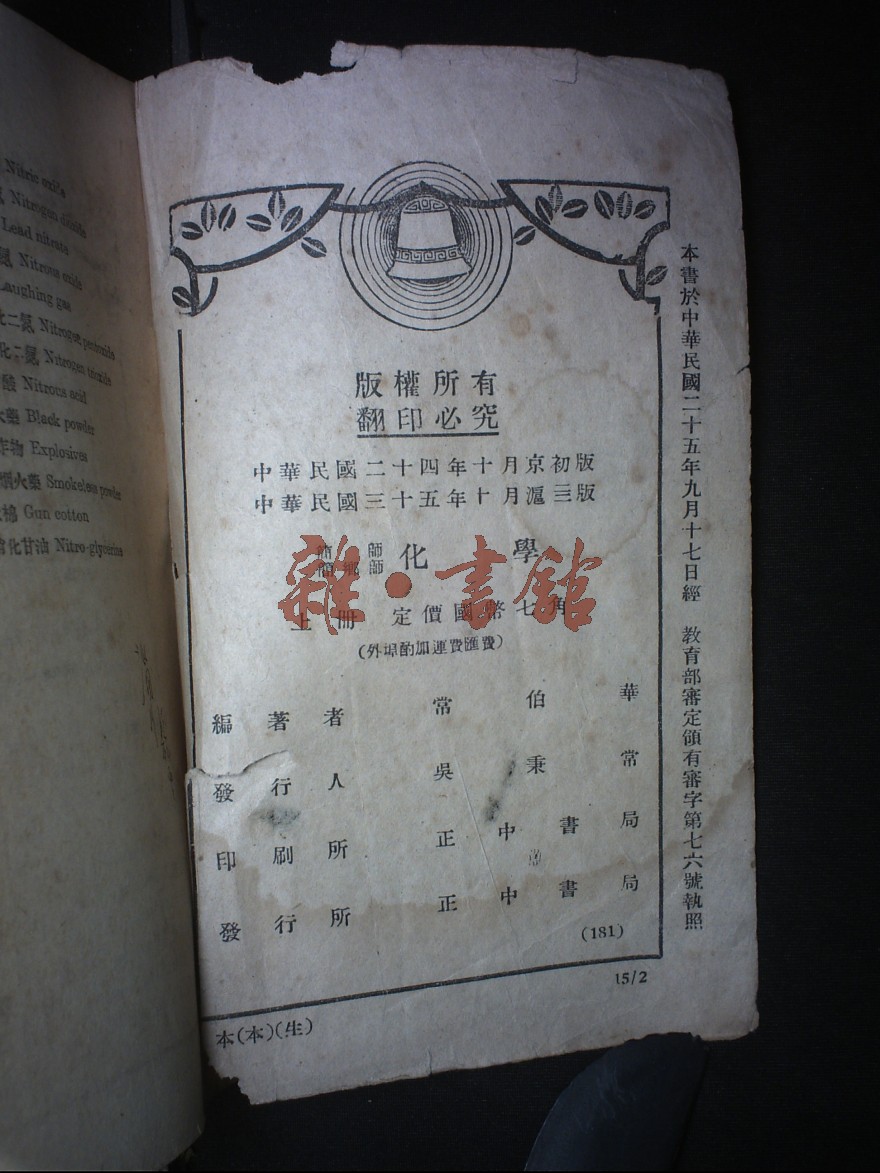 Nitric oxide
Nitrogen dioxide
Lead nitrate
氮 Nitrous oxide
Laughing gas
化二氮 Nitrogen pentoxide
化二氮 Nitrogen trioxide
酸 Nitrous acid
火藥 Black powder
炸物 Explosives
火藥 Smokeless powder
Gun cotton
化甘油 Nitro-glycerine
版權所有
翻印必究
中華民國二十四年十月京初版
中華民國三十五年十月滬三版
簡師
簡鄉師
化學
上冊 定價國幣七角
(外埠酌加運費匯費)
編著者 常伯華
發行人 吳秉常
印刷所 正中書局
發行所 正中書局
(181)
15/2
本(本)(生)
本書於中華民國二十五年九月十七日經 教育部審定領有審字第七六號執照
雜·書館